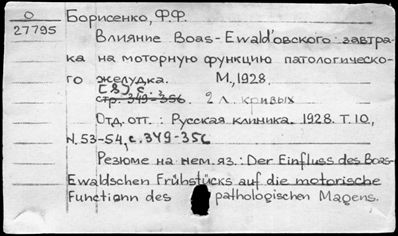 О
27795
Борисенко, Ф.Ф.
Влияние Boas-Ewald'овского завтра-
ка на моторную функцию патологическо-
го желудка. М., 1928.
[8] с.
стр. 349-356. 2 л. кривых
Отд. отт.: Русская клиника. 1928. Т. 10,
N. 53-54, с. 349-356
Резюме на нем. яз.: Der Einfluss des Boas-
Ewaldschen Frühstücks auf die motorische
Functionn des pathologischen Magens.